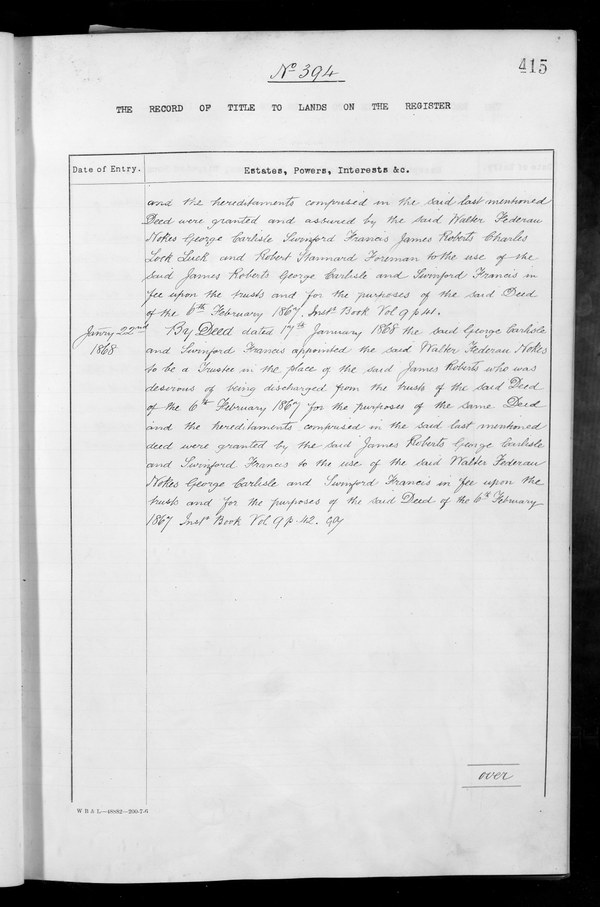 No 394
415
THE RECORD OF TITLE TO LANDS ON THE REGISTER
Date of Entry.
Estates, Powers, Interests &c.
and the hereditaments comprised in the said last mentioned
Deed were granted and assured by the said Walter Federau
Nokes George Carlisle Swinford Francis James Roberts Charles
Lock Luck and Robert Stannard Foreman to the use of the
said James Roberts George Carlisle and Swinford Francis in
fee upon the trusts and for the purposes of the said Deed
of the 6th February 1867. Insts Book Vol 9 p 41.
Janry 22nd
1868
By Deed dated 17th January 1868 the said George Carlisle
and Swinford Francis appointed the said Walter Federau Nokes
to be a Trustee in the place of the said James Roberts who was
desirous of being discharged from the trusts of the said Deed
of the 6th February 1867 for the purposes of the same Deed
and the hereditaments comprised in the said last mentioned
deed were granted by the said James Roberts George Carlisle
and Swinford Francis to the use of the said Walter Federau
Nokes George Carlisle and Swinford Francis in fee upon the
trusts and for the purposes of the said Deed of the 6th February
1867 Insts Book Vol 9 p. 42.
over
W B & L.—48882—200-7-6